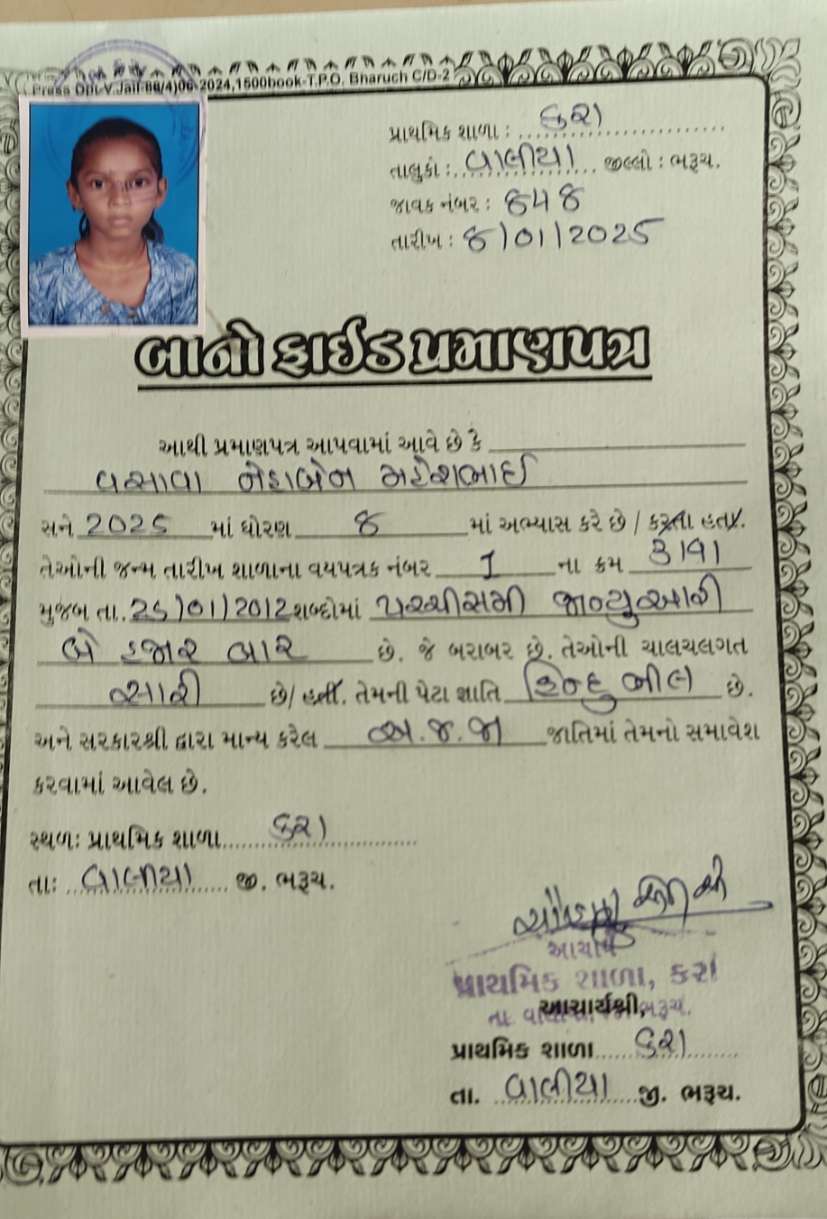 Press Opt-V.Jail-86/4)06-2024,1500book-T.P.O. Bharuch C/D-2
પ્રાથમિક શાળા : કરા
તાલુકો : વાલીયા જીલ્લો : ભરૂચ.
જાવક નંબર : ૪૫૪
તારીખ : 8/01/2025
બોનોફાઈડ પ્રમાણપત્ર
આથી પ્રમાણપત્ર આપવામાં આવે છે કે
વસાવા નેહાબેન મહેશભાઈ
સને 2025 માં ધોરણ ૪ માં અભ્યાસ કરે છે / કરતા હતા.
તેઓની જન્મ તારીખ શાળાના વયપત્રક નંબર 1 ના ક્રમ
મુજબ તા. 25/01/2012 શબ્દોમાં પચ્ચીસમી જાન્યુઆરી
બે હજાર બાર છે. જે બરાબર છે. તેઓની ચાલચલગત
સારી છે/ હતી. તેમની પેટા જ્ઞાતિ હિન્દુ ભીલ છે.
અને સરકારશ્રી દ્વારા માન્ય કરેલ અ.જ.જા જાતિમાં તેમનો સમાવેશ
કરવામાં આવેલ છે.
સ્થળ: પ્રાથમિક શાળા કરા
તા: વાલીયા જી. ભરૂચ.
આચાર્ય
પ્રાથમિક શાળા, કરા
તા. ભરૂચ.
આચાર્યશ્રી,
પ્રાથમિક શાળા કરા
તા. વાલીયા જી. ભરૂચ.